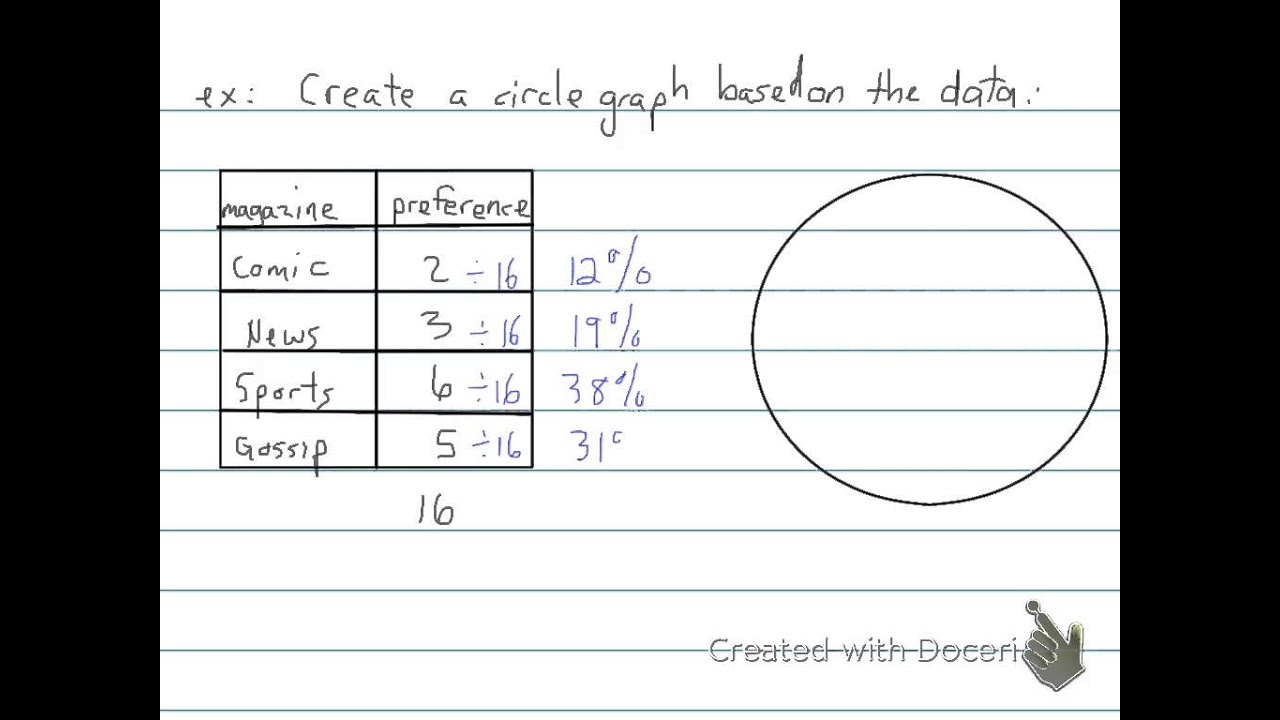 ex: Create a circle graph based on the data.
magazine preference
Comic 2 ÷ 16 12%
News 3 ÷ 16 19%
Sports 6 ÷ 16 38%
Gossip 5 ÷ 16 31°
16
Created with Doceri